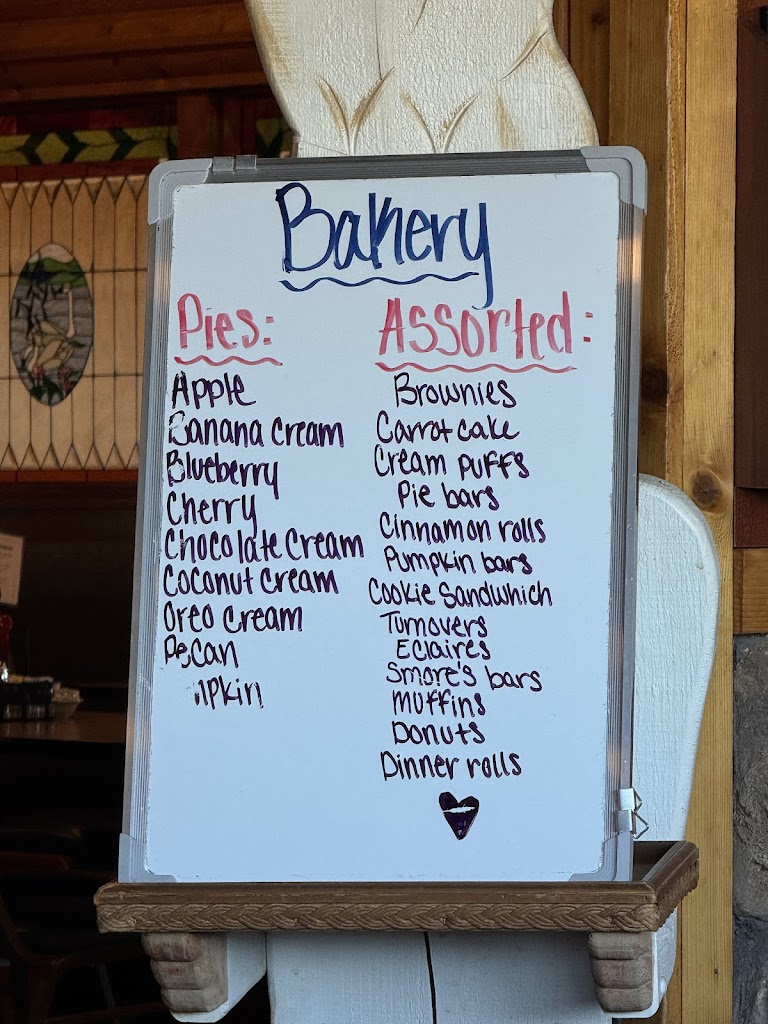 Bakery
Pies:
Apple
Banana Cream
Blueberry
Cherry
Chocolate Cream
Coconut Cream
Oreo Cream
Pecan
Assorted:
Brownies
Carrot cake
Cream puffs
Pie bars
Cinnamon rolls
Pumpkin bars
Cookie Sandwhich
Turnovers
Eclaires
Smore's bars
Muffins
Donuts
Dinner rolls